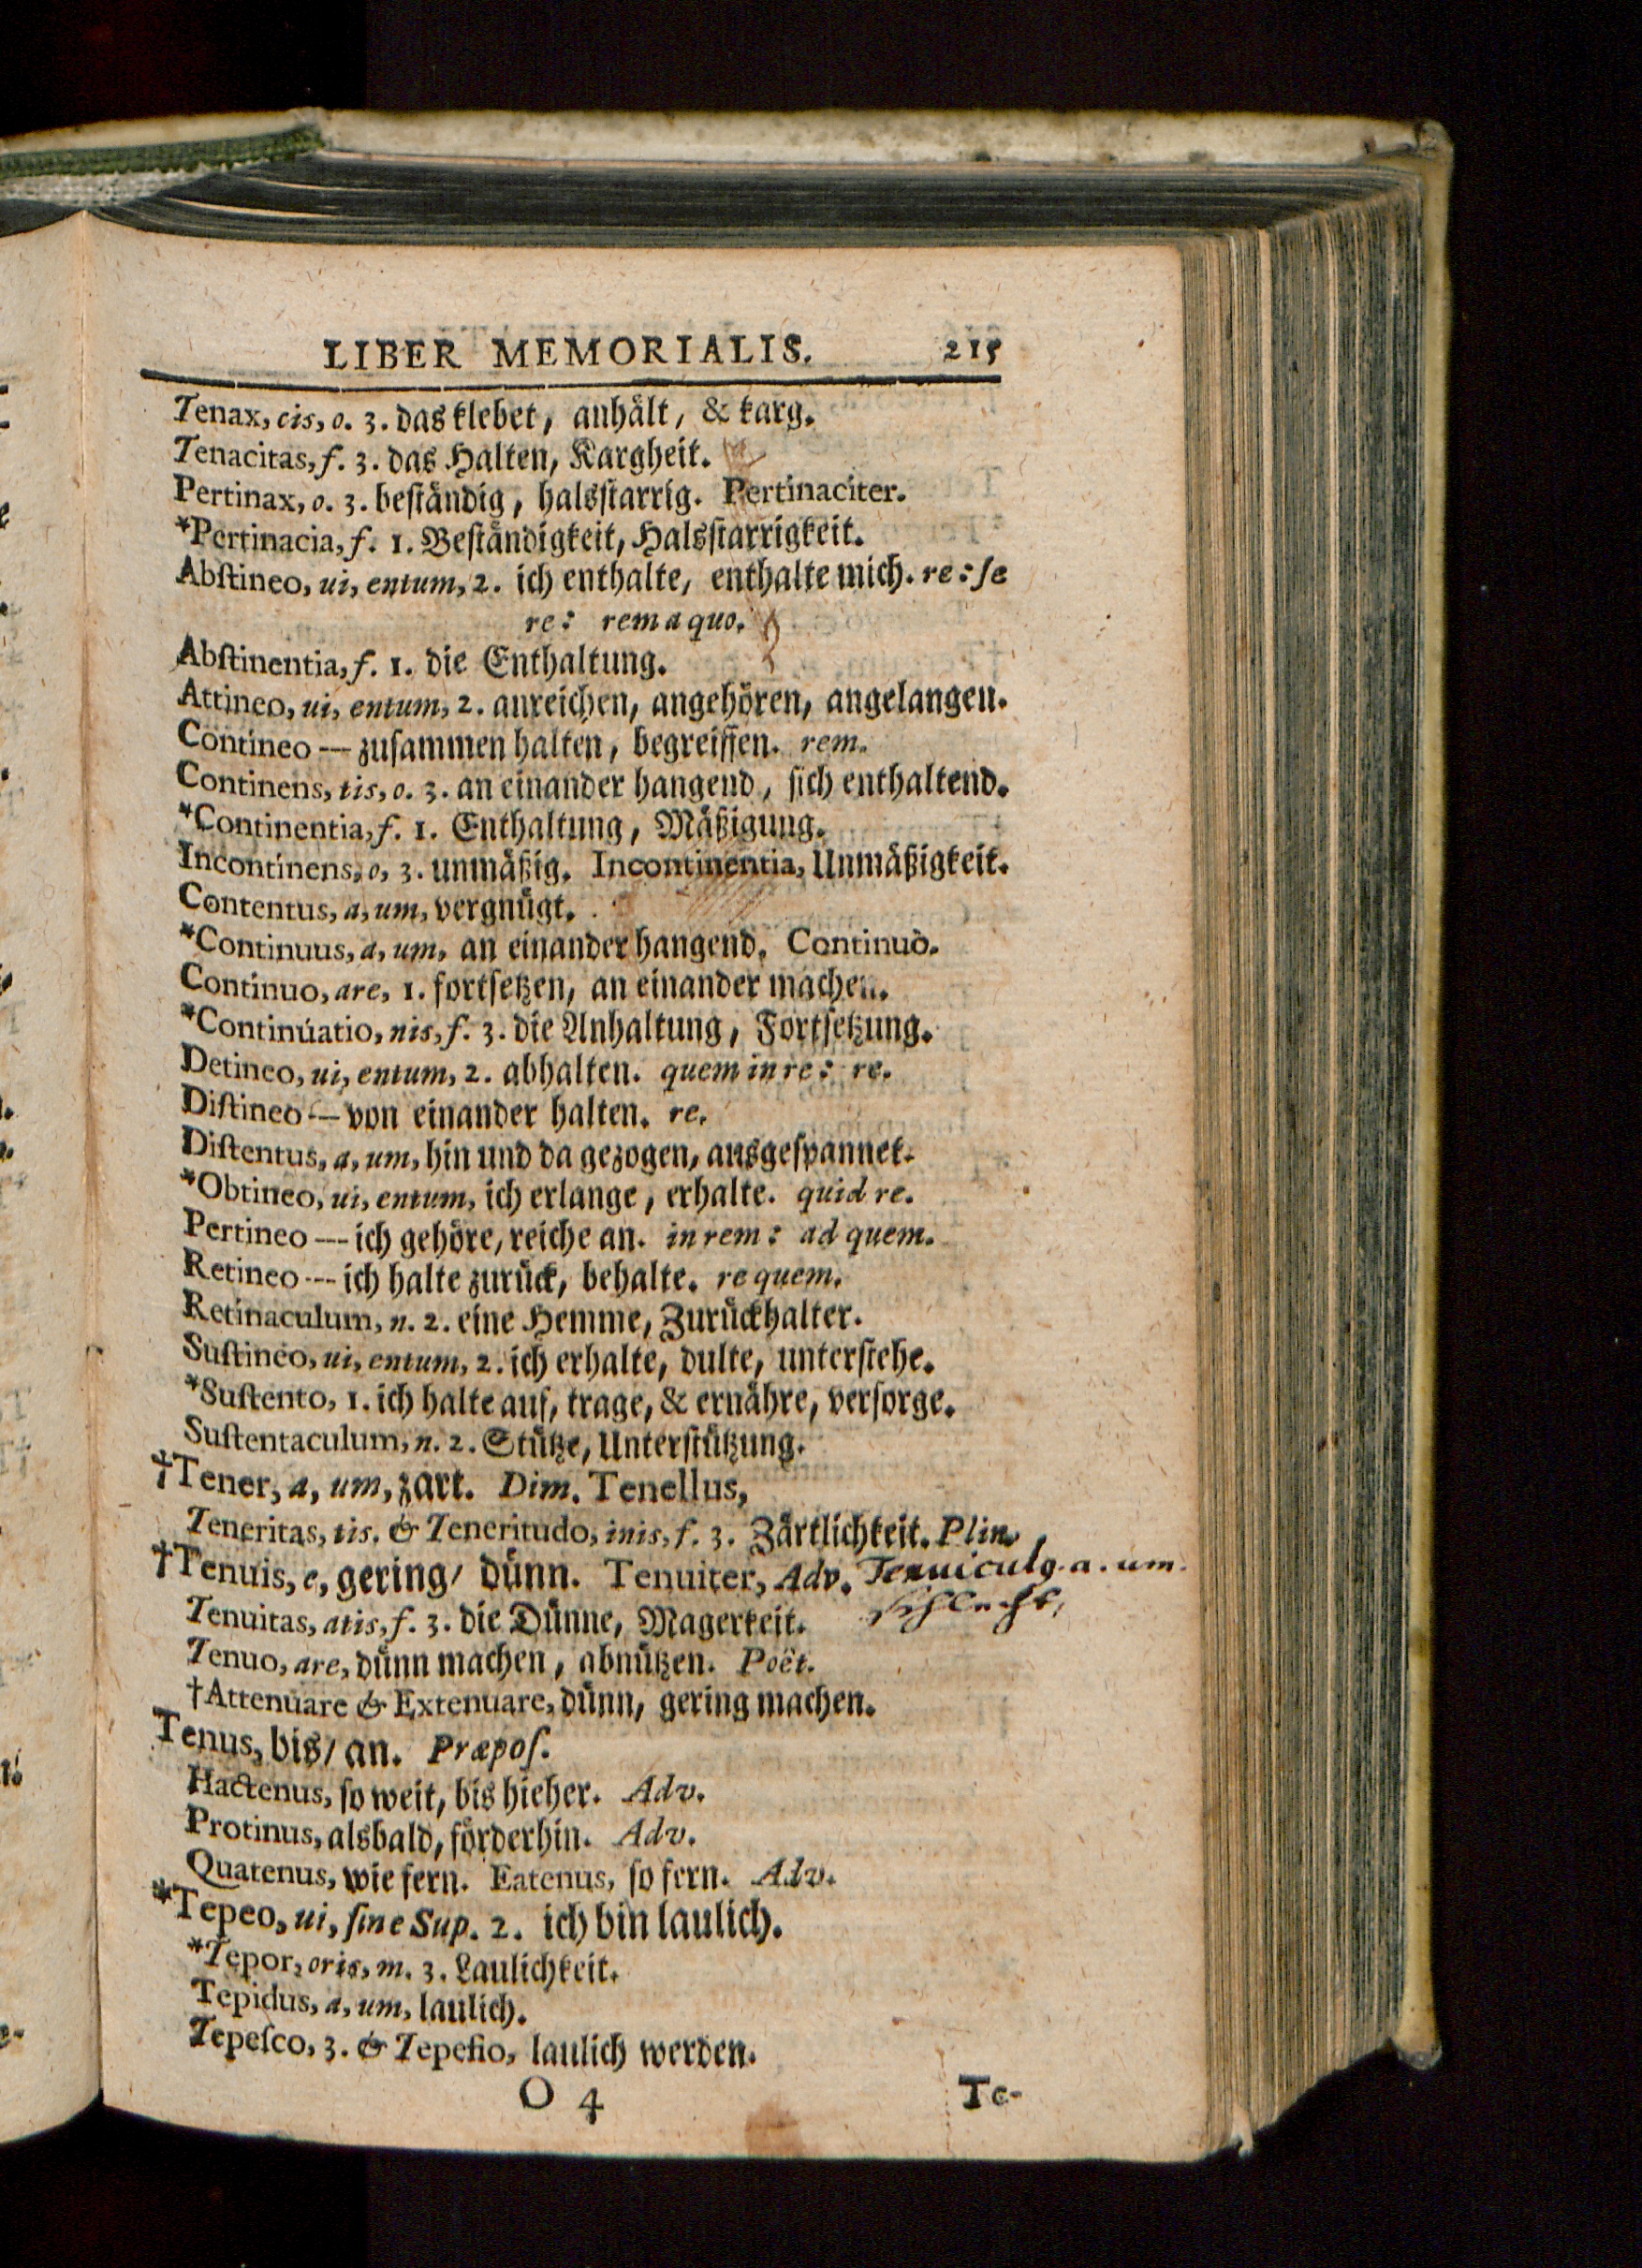 LIBER MEMORIALIS. 215
Tenax, cis, o. 3. das klebet, anhält, & karg.
Tenacitas, f. 3. das Halten, Kargheit.
Pertinax, o. 3. beständig, halsstarrig. Pertinaciter.
*Pertinacia, f. 1. Beständigkeit, Halsstarrigkeit.
Abſtineo, ui, entum, 2. ich enthalte, enthalte mich. re: ſe
re: rem a quo.
Abſtinentia, f. 1. die Enthaltung.
Attineo, ui, entum, 2. anreichen, angehören, angelangen.
Contineo --- zusammen halten, begreiffen. rem.
Continens, tis, o. 3. an einander hangend, sich enthaltend.
*Continentia, f. 1. Enthaltung, Mäßigung.
Incontinens, o, 3. unmäßig. Incontinentia, Unmäßigkeit.
Contentus, a, um, vergnügt.
*Continuus, a, um, an einander hangend. Continuò.
Continuo, are, 1. fortsetzen, an einander machen.
*Continúatio, nis, f. 3. die Anhaltung, Fortsetzung.
Detineo, ui, entum, 2. abhalten. quem in re: re.
Diſtineo --- von einander halten. re.
Diſtentus, a, um, hin und da gezogen, ausgespannet.
*Obtineo, ui, entum, ich erlange, erhalte. quid re.
Pertineo --- ich gehöre, reiche an. in rem: ad quem.
Retineo --- ich halte zurück, behalte. re quem.
Retinaculum, n. 2. eine Hemme, Zurückhalter.
Suſtineo, ui, entum, 2. ich erhalte, dulte, unterstehe.
*Suſtento, 1. ich halte auf, trage, & ernähre, versorge.
Suſtentaculum, n. 2. Stütze, Unterstützung.
†Tener, a, um, zart. Dim. Tenellus,
Teneritas, tis. & Teneritudo, inis, f. 3. Zärtlichkeit. Plin.
†Tenuis, e, gering/ dünn. Tenuiter, Adv. Tenuiculg. a. um.
Tenuitas, atis, f. 3. die Dünne, Magerkeit. schlecht,
Tenuo, are, dünn machen, abnützen. Poët.
†Attenuare & Extenuare, dünn, gering machen.
Tenus, bis/ an. Præpoſ.
Hactenus, so weit, bis hieher. Adv.
Protinus, alsbald, förderhin. Adv.
Quatenus, wie fern. Eatenus, so fern. Adv.
*Tepeo, ui, ſine Sup. 2. ich bin laulich.
*Tepor, oris, m. 3. Laulichkeit.
Tepidus, a, um, laulich.
Tepeſco, 3. & Tepefio, laulich werden.
O 4 Te-